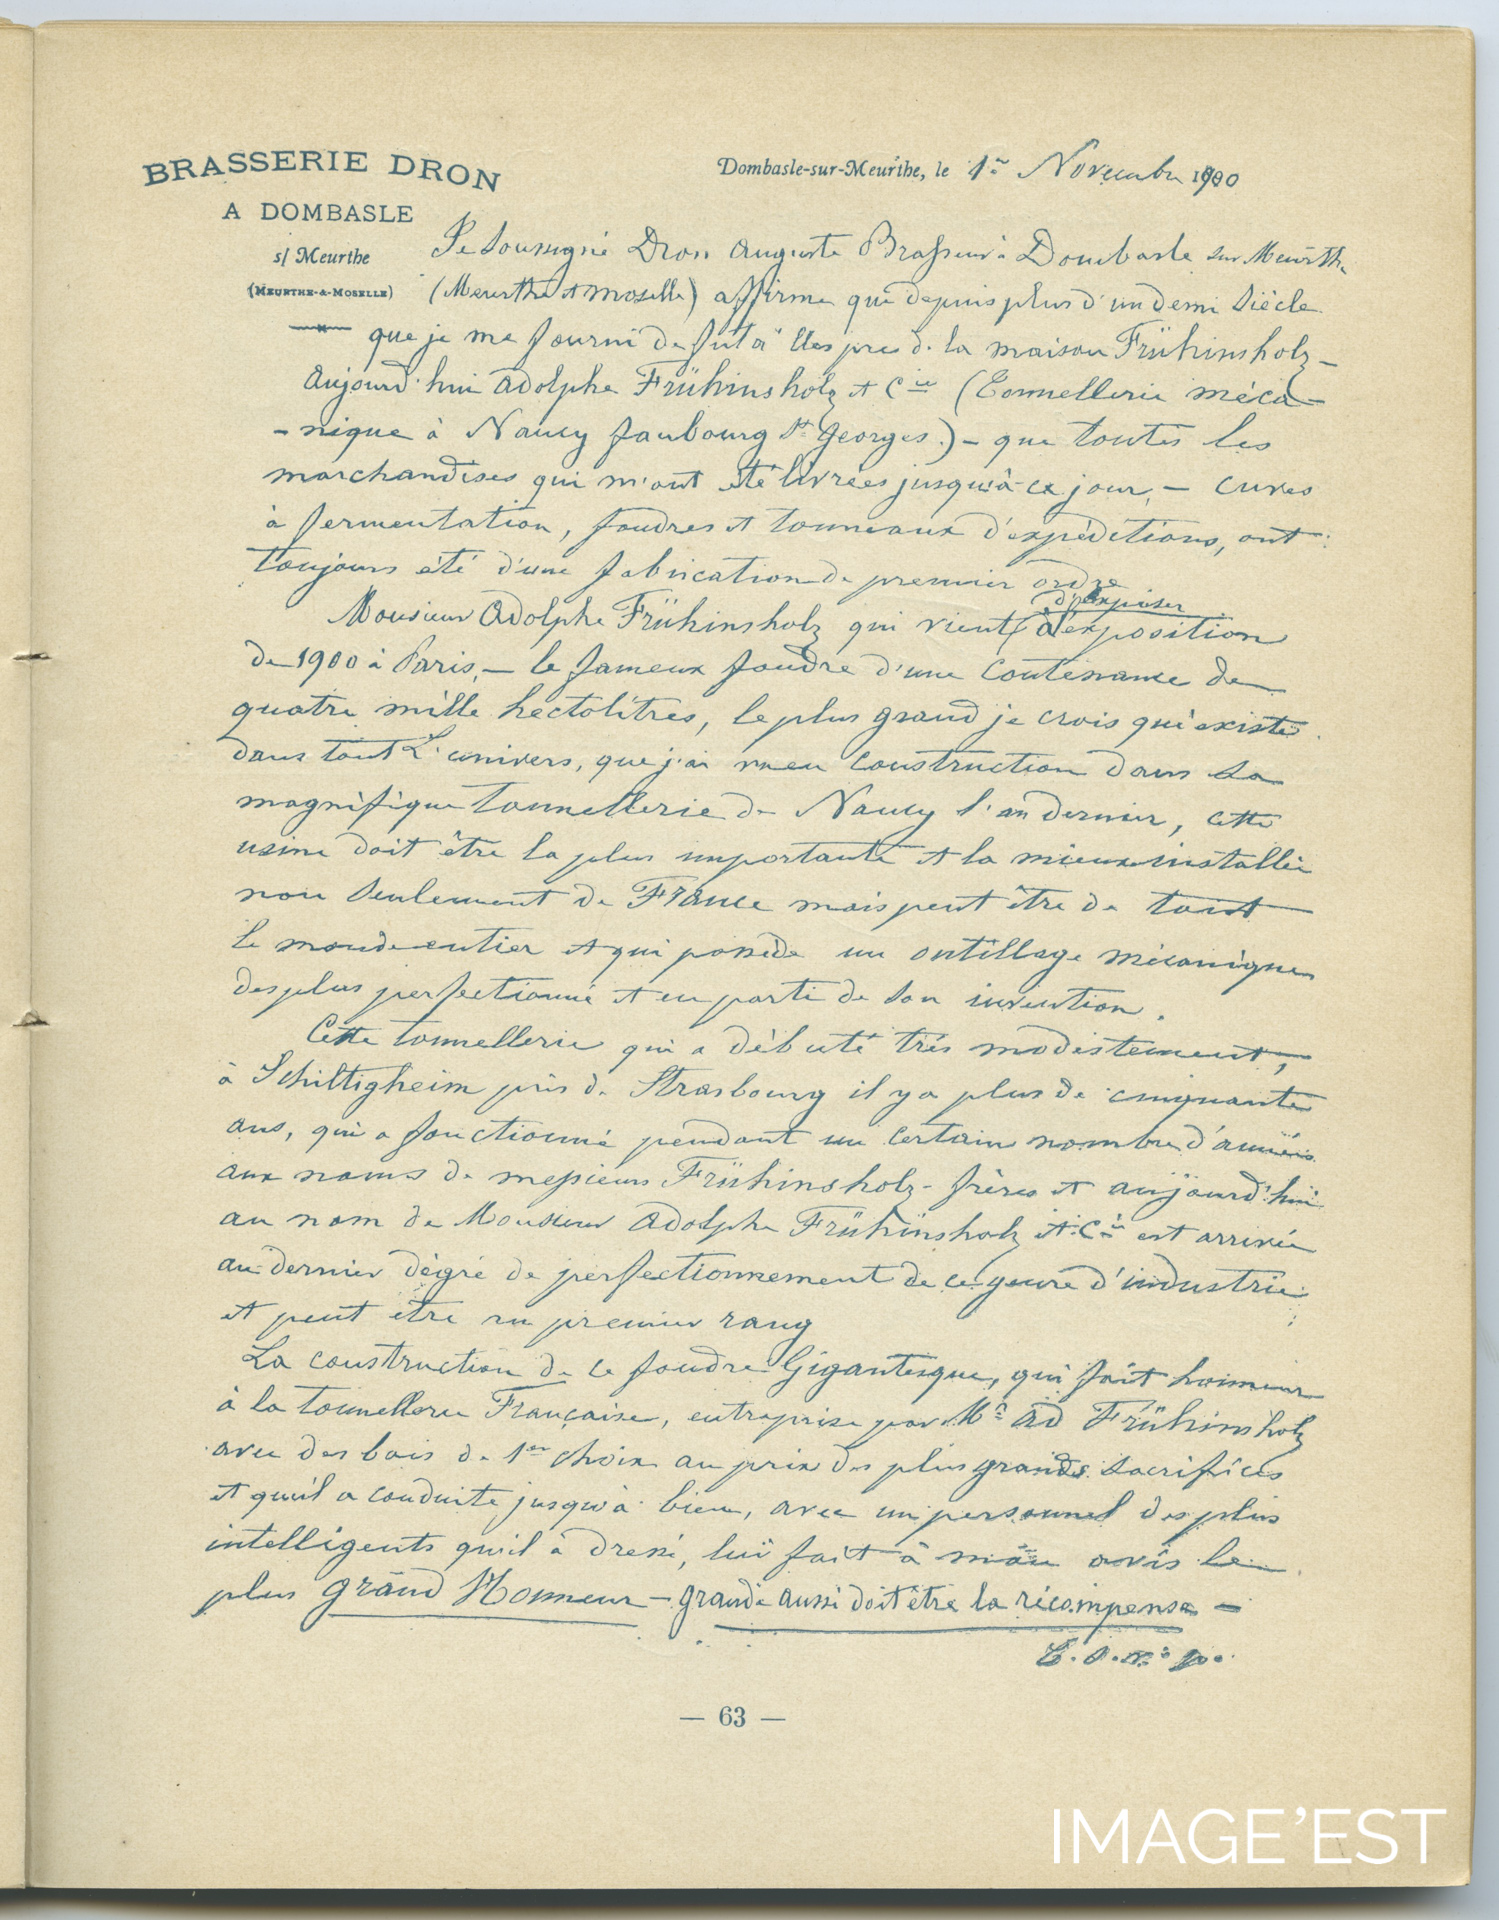 BRASSERIE DRON
A DOMBASLE
s/ Meurthe
(MEURTHE-&-MOSELLE)
Dombasle-sur-Meurthe, le 1er Novembre 1900
Je soussigné Dron Auguste Brasseur à Dombasle sur Meurthe
(Meurthe et Moselle) affirme que depuis plus d'un demi siècle
que je me fourni de futailles pres de la maison Frühinsholz -
aujourd'hui Adolphe Frühinsholz et Cie (Tonnellerie méca-
- nique à Nancy faubourg St Georges.) - que toutes les
marchandises qui m'ont été livrées jusqu'à ce jour, - cuves
à fermentation, foudres et tonneaux d'expéditions, ont
toujours été d'une fabrication de premier ordre
d'exposer
Monsieur Adolphe Frühinsholz qui vient (à l'exposition
de 1900 à Paris, - le fameux foudre d'une contenance de
quatre mille hectolitres, le plus grand je crois qui existe
dans tout L'univers, que j'ai vu en construction dans sa
magnifique tonnellerie de Nancy l'an dernier, cette
usine doit être la plus importante et la mieux installée
non seulement de France mais peut être de tout
le monde entier et qui possède un outillage mécanique
des plus perfectionné et en partie de son invention.
Cette tonnellerie qui a débuté très modestement,
à Schiltigheim près de Strasbourg il y a plus de cinquante
ans, qui a fonctionné pendant un certain nombre d'années
aux noms de messieurs Frühinsholz - frères et aujourd'hui
au nom de Monsieur Adolphe Frühinsholz et Cie est arrivée
au dernier dégré de perfectionnement de ce genre d'industrie
et peut être au premier rang
La construction de ce foudre Gigantesque, qui fait honneur
à la tonnellerie Française, entreprise par Mr Ad Frühinsholz
avec des bois de 1er choix au prix des plus grands sacrifices
et qu'il a conduite jusqu'à bien, avec un personnel des plus
intelligents qu'il à dressé, lui fait à mon avis le
plus grand Honneur - grande aussi doit être la récompense -
T. S. V. P.
— 63 —
IMAGE'EST